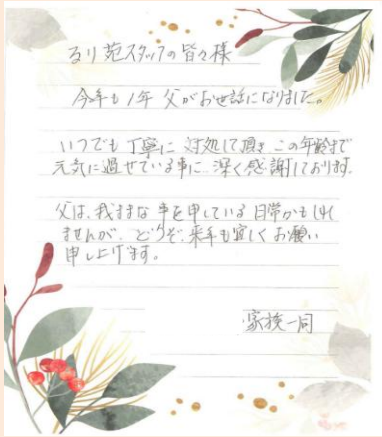 るり苑スタッフの皆々様
今年も1年 父がお世話になりました。
いつでも丁寧に 対処して頂き この年齢まで
元気に過せている事に 深く感謝しております。
父は、我ままな 事を申している 日常かもしれ
ませんが、どうぞ、来年も宜しくお願い
申し上げます。
家族一同